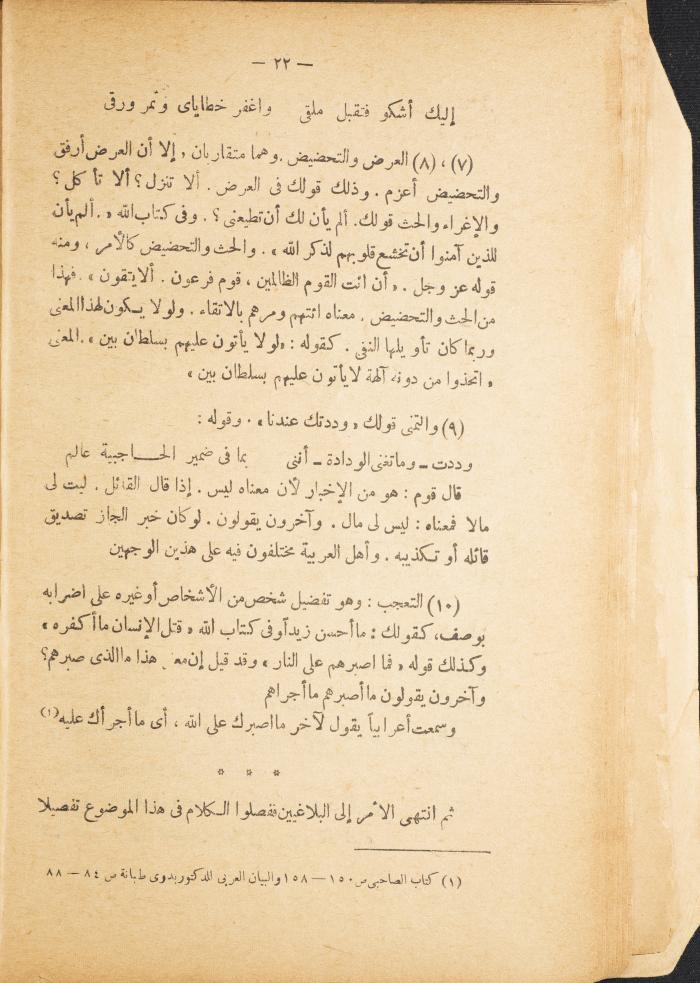 — ٢٢ —
إليك أشكو فتقبل ملقى واغفر خطاياى وثمر ورقى
(٧) ، (٨) العرض والتحضيض . وهما متقاربان , إلا أن العرض أرفق
والتحضيض أعزم . وذلك قولك فى العرض . ألا تنزل ؟ ألا تأكل ؟
والإغراء والحث قولك. ألم يأن لك أن تطيعنى ؟ . وفى كتاب الله « . ألم يأن
للذين آمنوا أن تخشع قلوبهم لذكر الله » . والحث والتحضيض كالأمر ، ومنه
قوله عز وجل . « أن ائت القوم الظالمين ، قوم فرعون . ألا يتقون » . فهذا
من الحث والتحضيض . معناه ائتهم ومرهم بالاتقاء . ولولا يكون لهذا المعنى
وربما كان تأويلها النفى . كقوله : «لولا يأتون عليهم بسلطان بين» . المعنى
« اتخذوا من دونه آلهة لا يأتون عليهم بسلطان بين »
(٩) والتمنى قولك « وددتك عندنا » . وقوله :
وددت ــ وما تغنى الودادة ــ أننى بما فى ضمير الحـــاجبية عالم
قال قوم : هو من الإخبار لأن معناه ليس . إذا قال القائل . ليت لى
مالا فمعناه : ليس لى مال . وآخرون يقولون . لو كان خبر الجاز تصديق
قائله أو تكذيبه . وأهل العربية مختلفون فيه على هذين الوجهين
(١٠) التعجب : وهو تفضيل شخص من الأشخاص أو غيره على اضرابه
بوصف، كقولك : ما أحسن زيداً وفى كتاب الله « قتل الإنسان ما أكفره »
وكذلك قوله « فما اصبرهم على النار » وقد قيل إن مع هذا ما الذى صبرهم؟
وآخرون يقولون ما أصبرهم ما أجراهم
وسمعت أعرابياً يقول لآخر ما اصبرك على الله ، أى ما أجرأك عليه(١)
* * *
ثم انتهى الأمر إلى البلاغيين ففصلوا الكلام فى هذا الموضوع تفصيلا
(١) كتاب الصاحبى ص ١٥٠ — ١٥٨ والبيان العربى للدكتور بدوى طبانة ص ٨٤ — ٨٨